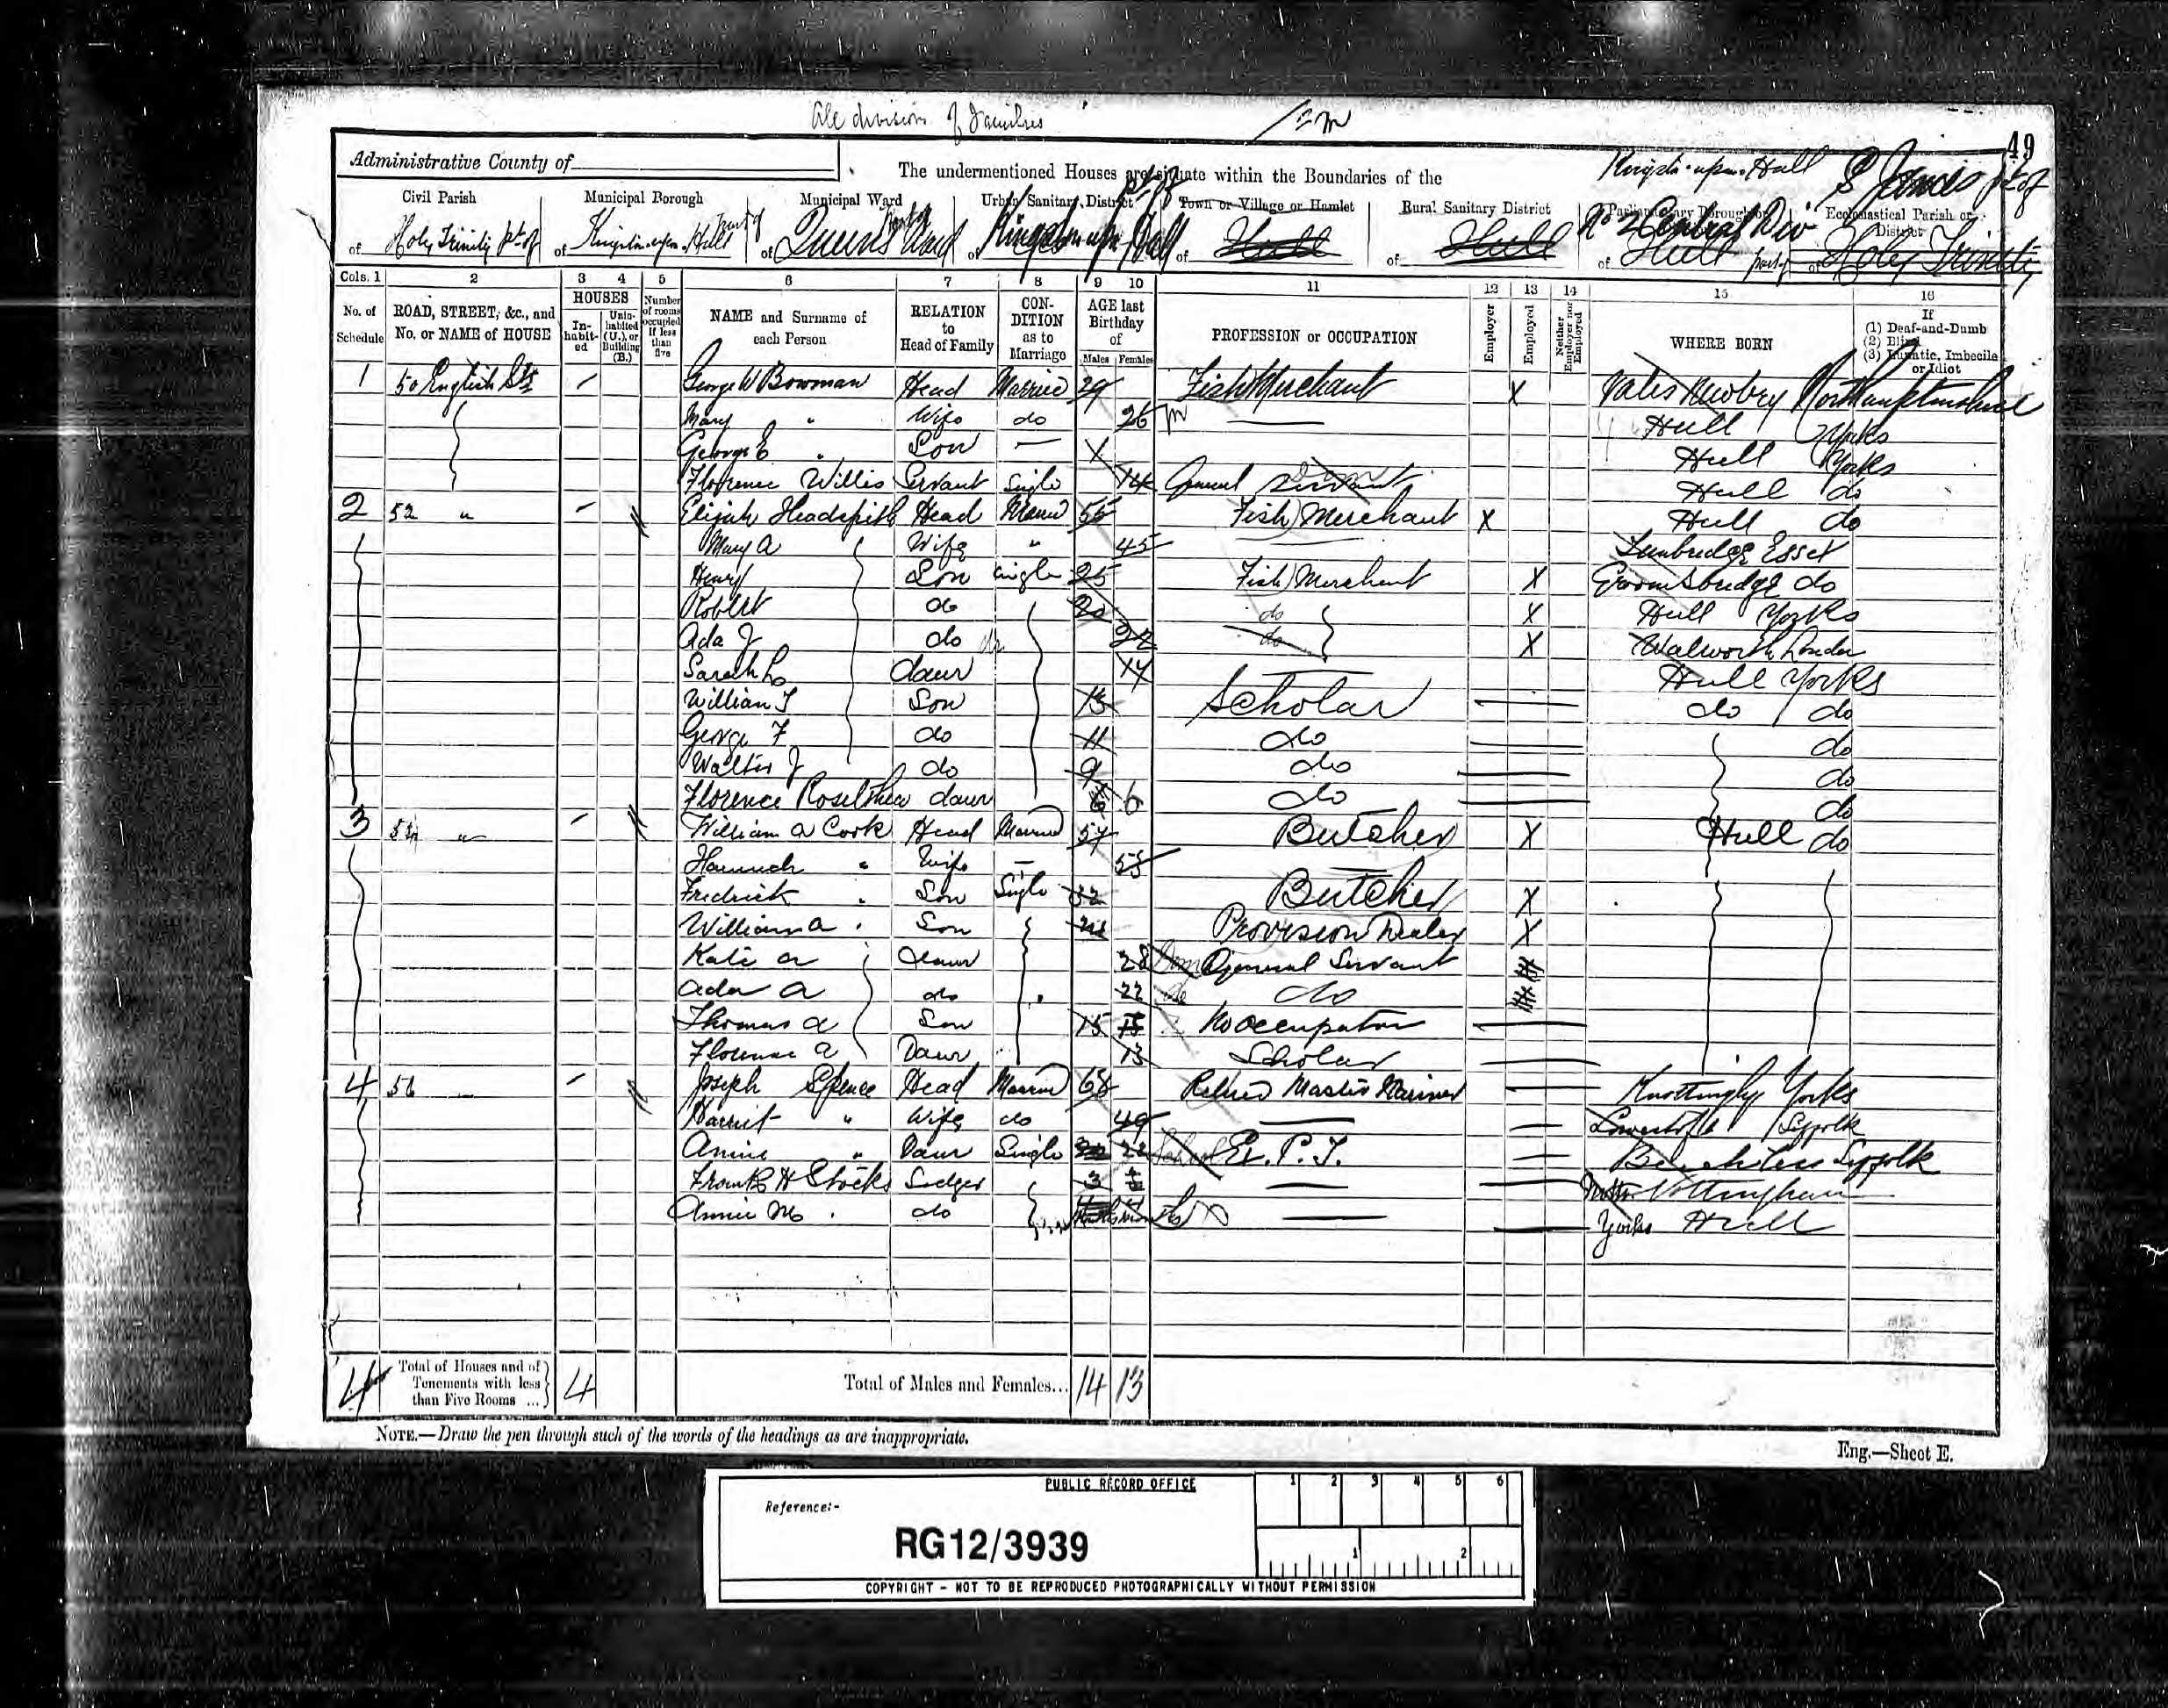 All division of Families
49
Administrative County of
The undermentioned Houses are situate within the Boundaries of the
Kingston-upon-Hull
St James pt of
Civil Parish
Municipal Borough
Municipal Ward
Urban Sanitary District
Town or Village or Hamlet
Rural Sanitary District
Parliamentary Borough or
Ecclesiastical Parish or District
of Holy Trinity pt of
of Kingston-upon-Hull part of
of Queens Ward part of
of Kingston upon Hull pt of
of Hull
of Hull
No 2 Central Div
of Hull part of
of Holy Trinity
Cols. 1 2 3 4 5 6 7 8 9 10 11 12 13 14 15 16
No. of Schedule
ROAD, STREET, &c., and No. or NAME of HOUSE
HOUSES
In-habit-ed
Unin-habited (U.), or Building (B.)
Number of rooms occupied if less than five
NAME and Surname of each Person
RELATION to Head of Family
CON-DITION as to Marriage
AGE last Birthday of
Males Females
PROFESSION or OCCUPATION
Employer
Employed
Neither Employer nor Employed
WHERE BORN
If
(1) Deaf-and-Dumb
(2) Blind
(3) Lunatic, Imbecile or Idiot
1 50 English St George W Bowman Head Married 29 Fish Merchant X Northamptonshire
Mary " Wife do 26 Hull Yorks
George E " Son Hull Yorks
Florence Willis Servant Single 14 General Servant Hull do
2 52 " Elijah Headspith Head Married 55 Fish Merchant X Hull do
Mary A Wife " 45 Essex
Henry Son Single 25 Fish Merchant X Groomsbridge do
Robert do 20 do X Hull Yorks
Ada J do 22 do X Walworth London
Sarah L daur 14 Hull Yorks
William T Son 13 Scholar do do
George F do 11 do do
Walter J do 9 do do
Florence Rose daur 6 do do
3 54 " William A Cook Head Married 57 Butcher X Hull do
Hannah " Wife 55
Fredrick " Son Single 32 Butcher X
William A " Son Provision Dealer X
Kate A daur 28 General Servant
Ada A do 22 do
Thomas A Son 15 No occupation
Florence A Daur 13 Scholar
4 56 Joseph Spence Head Married 68 Retired Master Mariner Knottingly Yorks
Harriet " Wife do 49 Lowestoft Suffolk
Annie " Daur Single 22 School Ex. P. T. Suffolk
Frank H Stocks Lodger 3 Nottingham
Annie M " do Yorks Hull
4 Total of Houses and of Tenements with less than Five Rooms ... 4
Total of Males and Females... 14 13
NOTE.—Draw the pen through such of the words of the headings as are inappropriate.
Eng.—Sheet E.
PUBLIC RECORD OFFICE
1 2 3 4 5 6
Reference:-
RG12/3939
1 2
COPYRIGHT - NOT TO BE REPRODUCED PHOTOGRAPHICALLY WITHOUT PERMISSION